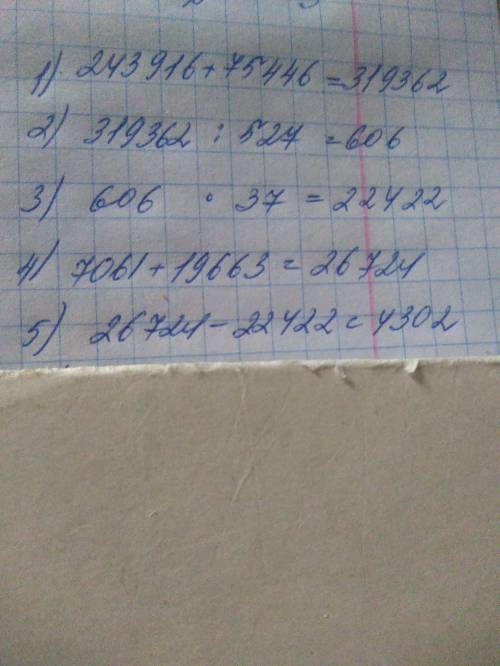 1) 243916+75446=319362
2) 319362 : 527 =606
3) 606 · 37 = 22422
4) 7061+19663=26724
5) 26724-22422=4302